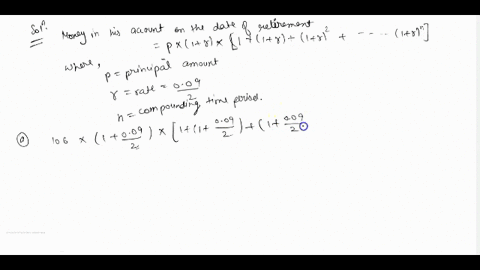 Solⁿ. Money in his account on the date of retirement
= p × (1+r) × [1 + (1+r) + (1+r)² + - - - - - (1+r)ⁿ]
where,
p = principal amount
r = rate = 0.09/2
n = compounding time period.
ⓐ 106 × (1 + 0.09/2) × [1 + (1 + 0.09/2) + (1 + 0.09/2